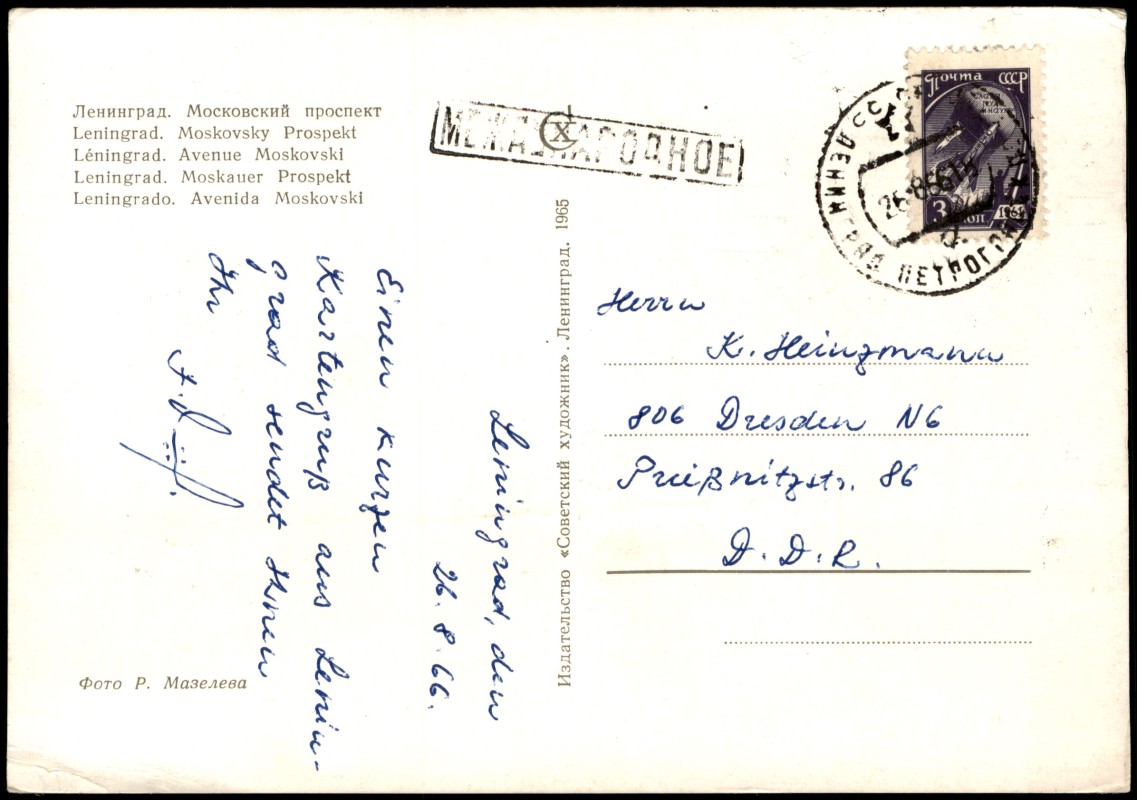 Ленинград. Московский проспект
Leningrad. Moskovsky Prospekt
Léningrad. Avenue Moskovski
Leningrad. Moskauer Prospekt
Leningrado. Avenida Moskovski
МЕЖДУНАРОДНОЕ
Почта СССР
3 коп
1961
СССР
ЛЕНИНГРАД
26-866
Leningrad, den
26.8.66.
Einen kurzen
Kartengruß aus Lenin-
grad sendet Ihnen
Ihr
Издательство «Советский художник». Ленинград. 1965
Herrn
K. Heinzmann
806 Dresden N6
Prießnitzstr. 86
D.D.R.
Фото Р. Мазелева